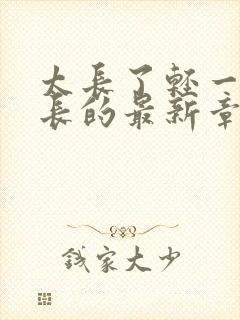 太長了輕一
長的最新章
錢家大少